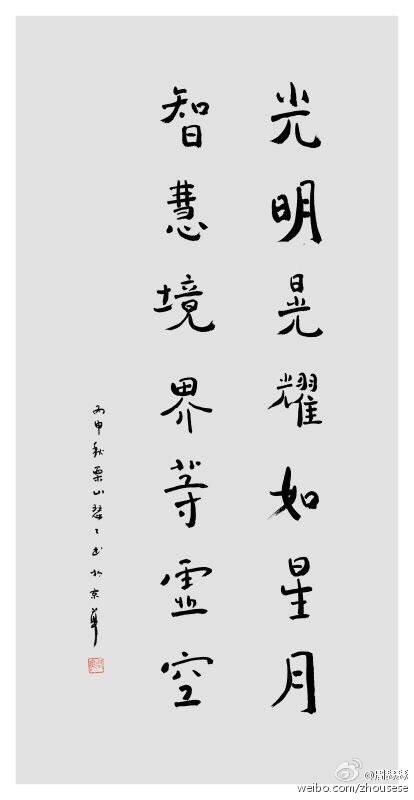 光明晃耀如星月
智慧境界等虚空
丙申秋栗山瑟瑟书於京華
weibo.com/zhousese